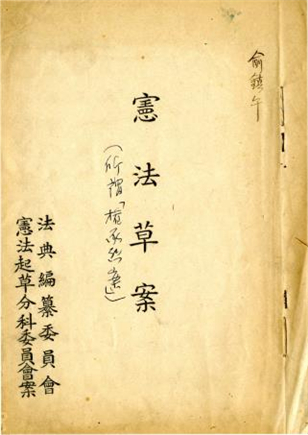 俞鎮午
憲法草案
(所謂「権承烈案」)
法典編纂委員會
憲法起草分科委員會案